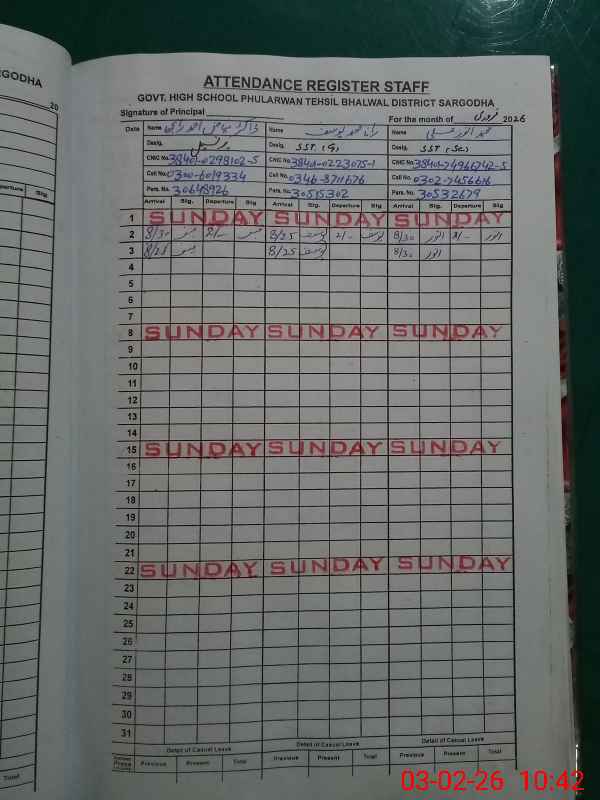 RGODHA
20
ATTENDANCE REGISTER STAFF
GOVT. HIGH SCHOOL PHULARWAN TEHSIL BHALWAL DISTRICT SARGODHA
Signature of Principal For the month of فروری 2026
Date Name Name رانا محمد یوسف Name محمد انور علی
Desig. پرنسپل Desig. SST (G) Desig. SST (Sc)
CNIC No. 38401-0298102-5 CNIC No. 38401-0223075-1 CNIC No. 38401-7496742-5
Cell No. 0300-6019334 Cell No. 0346-8711676 Cell No. 0302-7456616
Pers. No. 30648926 Pers. No. 30515302 Pers. No. 30532679
Arrival Sig. Departure Sig Arrival Sig. Departure Sig Arrival Sig. Departure Sig
1 SUNDAY SUNDAY SUNDAY
2 8/30 2/- 8/25 یوسف 2/- یوسف 8/30 انور 2/- انور
3 8/25 8/25 یوسف 8/30 انور
4
5
6
7
8 SUNDAY SUNDAY SUNDAY
9
10
11
12
13
14
15 SUNDAY SUNDAY SUNDAY
16
17
18
19
20
21
22 SUNDAY SUNDAY SUNDAY
23
24
25
26
27
28
29
30
31
Detail of Casual Leave Detail of Casual Leave Detail of Casual Leave
Previous Present Total Previous Present Total Previous Present Total
Total
03-02-26 10:42